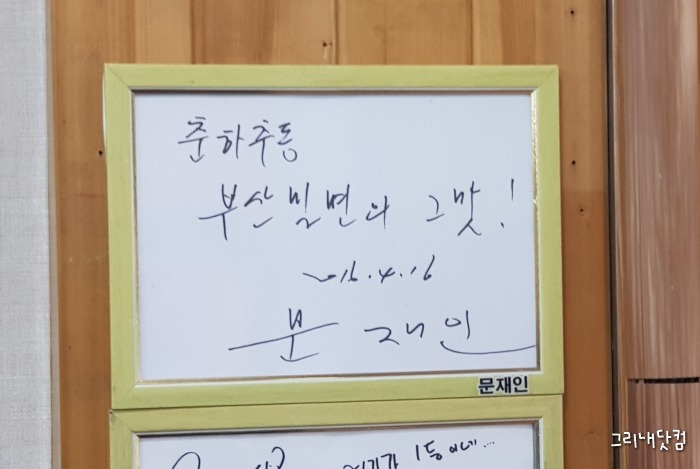 춘하추동
부산밀면의 그맛!
2016.4.16
문재인
문재인
여기가 1등이네...
그리내닷컴